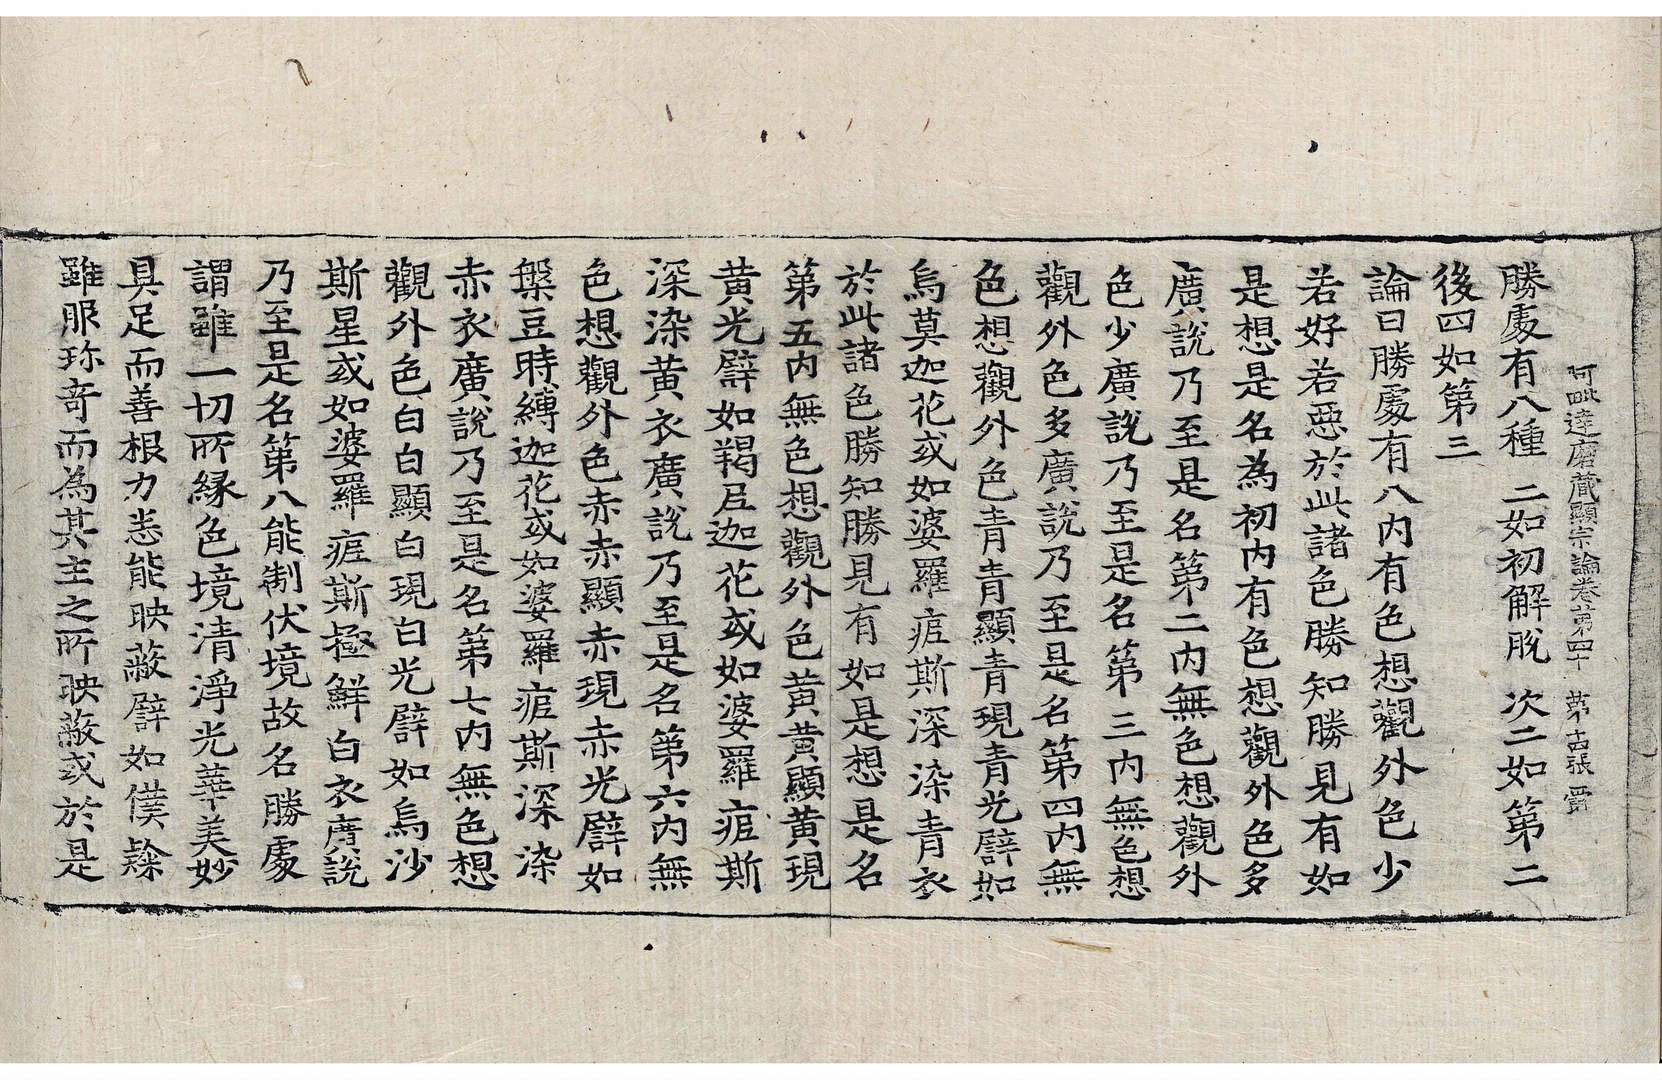 阿毗達磨藏顯宗論卷第四十 第十四張 賈
勝處有八種 二如初解脫 次二如第二
後四如第三
論曰勝處有八內有色想觀外色少
若好若惡於此諸色勝知勝見有如
是想是名為初內有色想觀外色多
廣說乃至是名第二內無色想觀外
色少廣說乃至是名第三內無色想
觀外色多廣說乃至是名第四內無
色想觀外色青青顯青現青光譬如
烏莫迦花或如婆羅痆斯深染青衣
於此諸色勝知勝見有如是想是名
第五內無色想觀外色黃黃顯黃現
黃光譬如羯尼迦花或如婆羅痆斯
深染黃衣廣說乃至是名第六內無
色想觀外色赤赤顯赤現赤光譬如
槃豆時縛迦花或如婆羅痆斯深染
赤衣廣說乃至是名第七內無色想
觀外色白白顯白現白光譬如烏沙
斯星或如婆羅痆斯極鮮白衣廣說
乃至是名第八能制伏境故名勝處
謂雖一切所緣色境清淨光華美妙
具足而善根力悉能映蔽譬如僕隸
雖服珎奇而為其主之所映蔽或於是